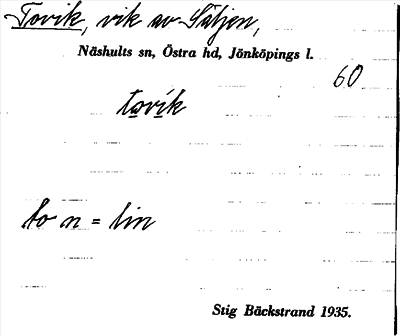 Tovik, vik av Säljen,
Näshults sn, Östra hd, Jönköpings l.
60
tovik
to n = lin
Stig Bäckstrand 1935.